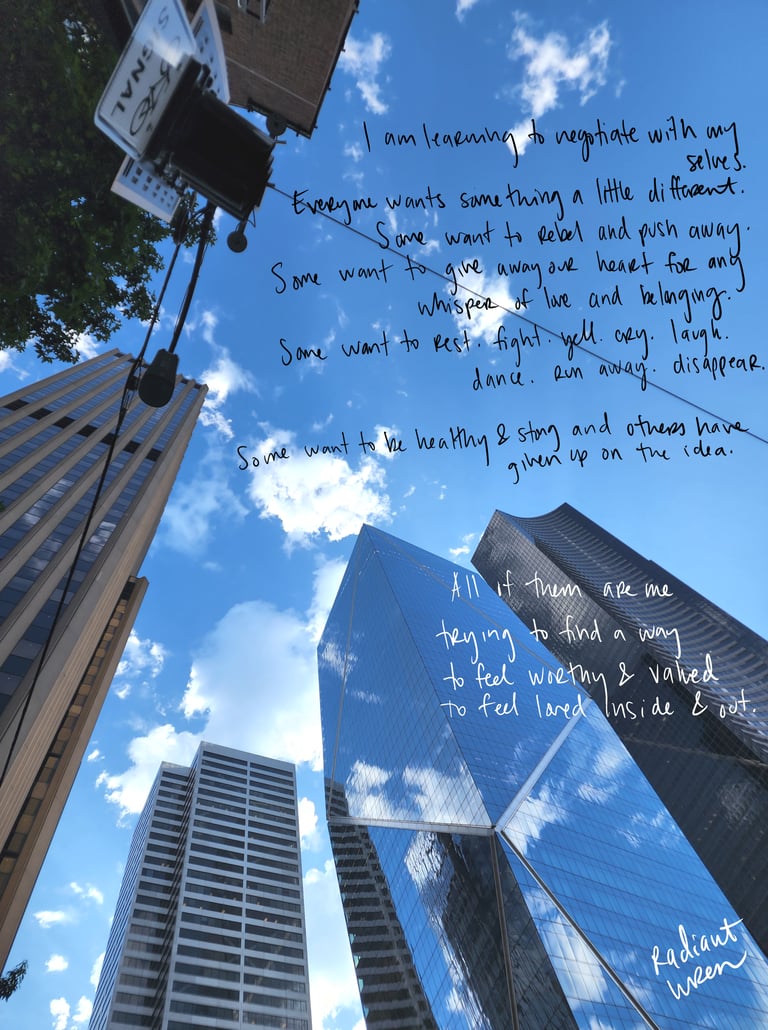 SIGNAL
I am learning to negotiate with my
selves.
Everyone wants something a little different.
Some want to rebel and push away.
Some want to give away our heart for any
whisper of love and belonging.
Some want to rest. fight. yell. cry. laugh.
dance. run away. disappear.
Some want to be healthy & strong and others have
given up on the idea.
All of them are me
trying to find a way
to feel worthy & valued
to feel loved inside & out.
Radiant
Wren